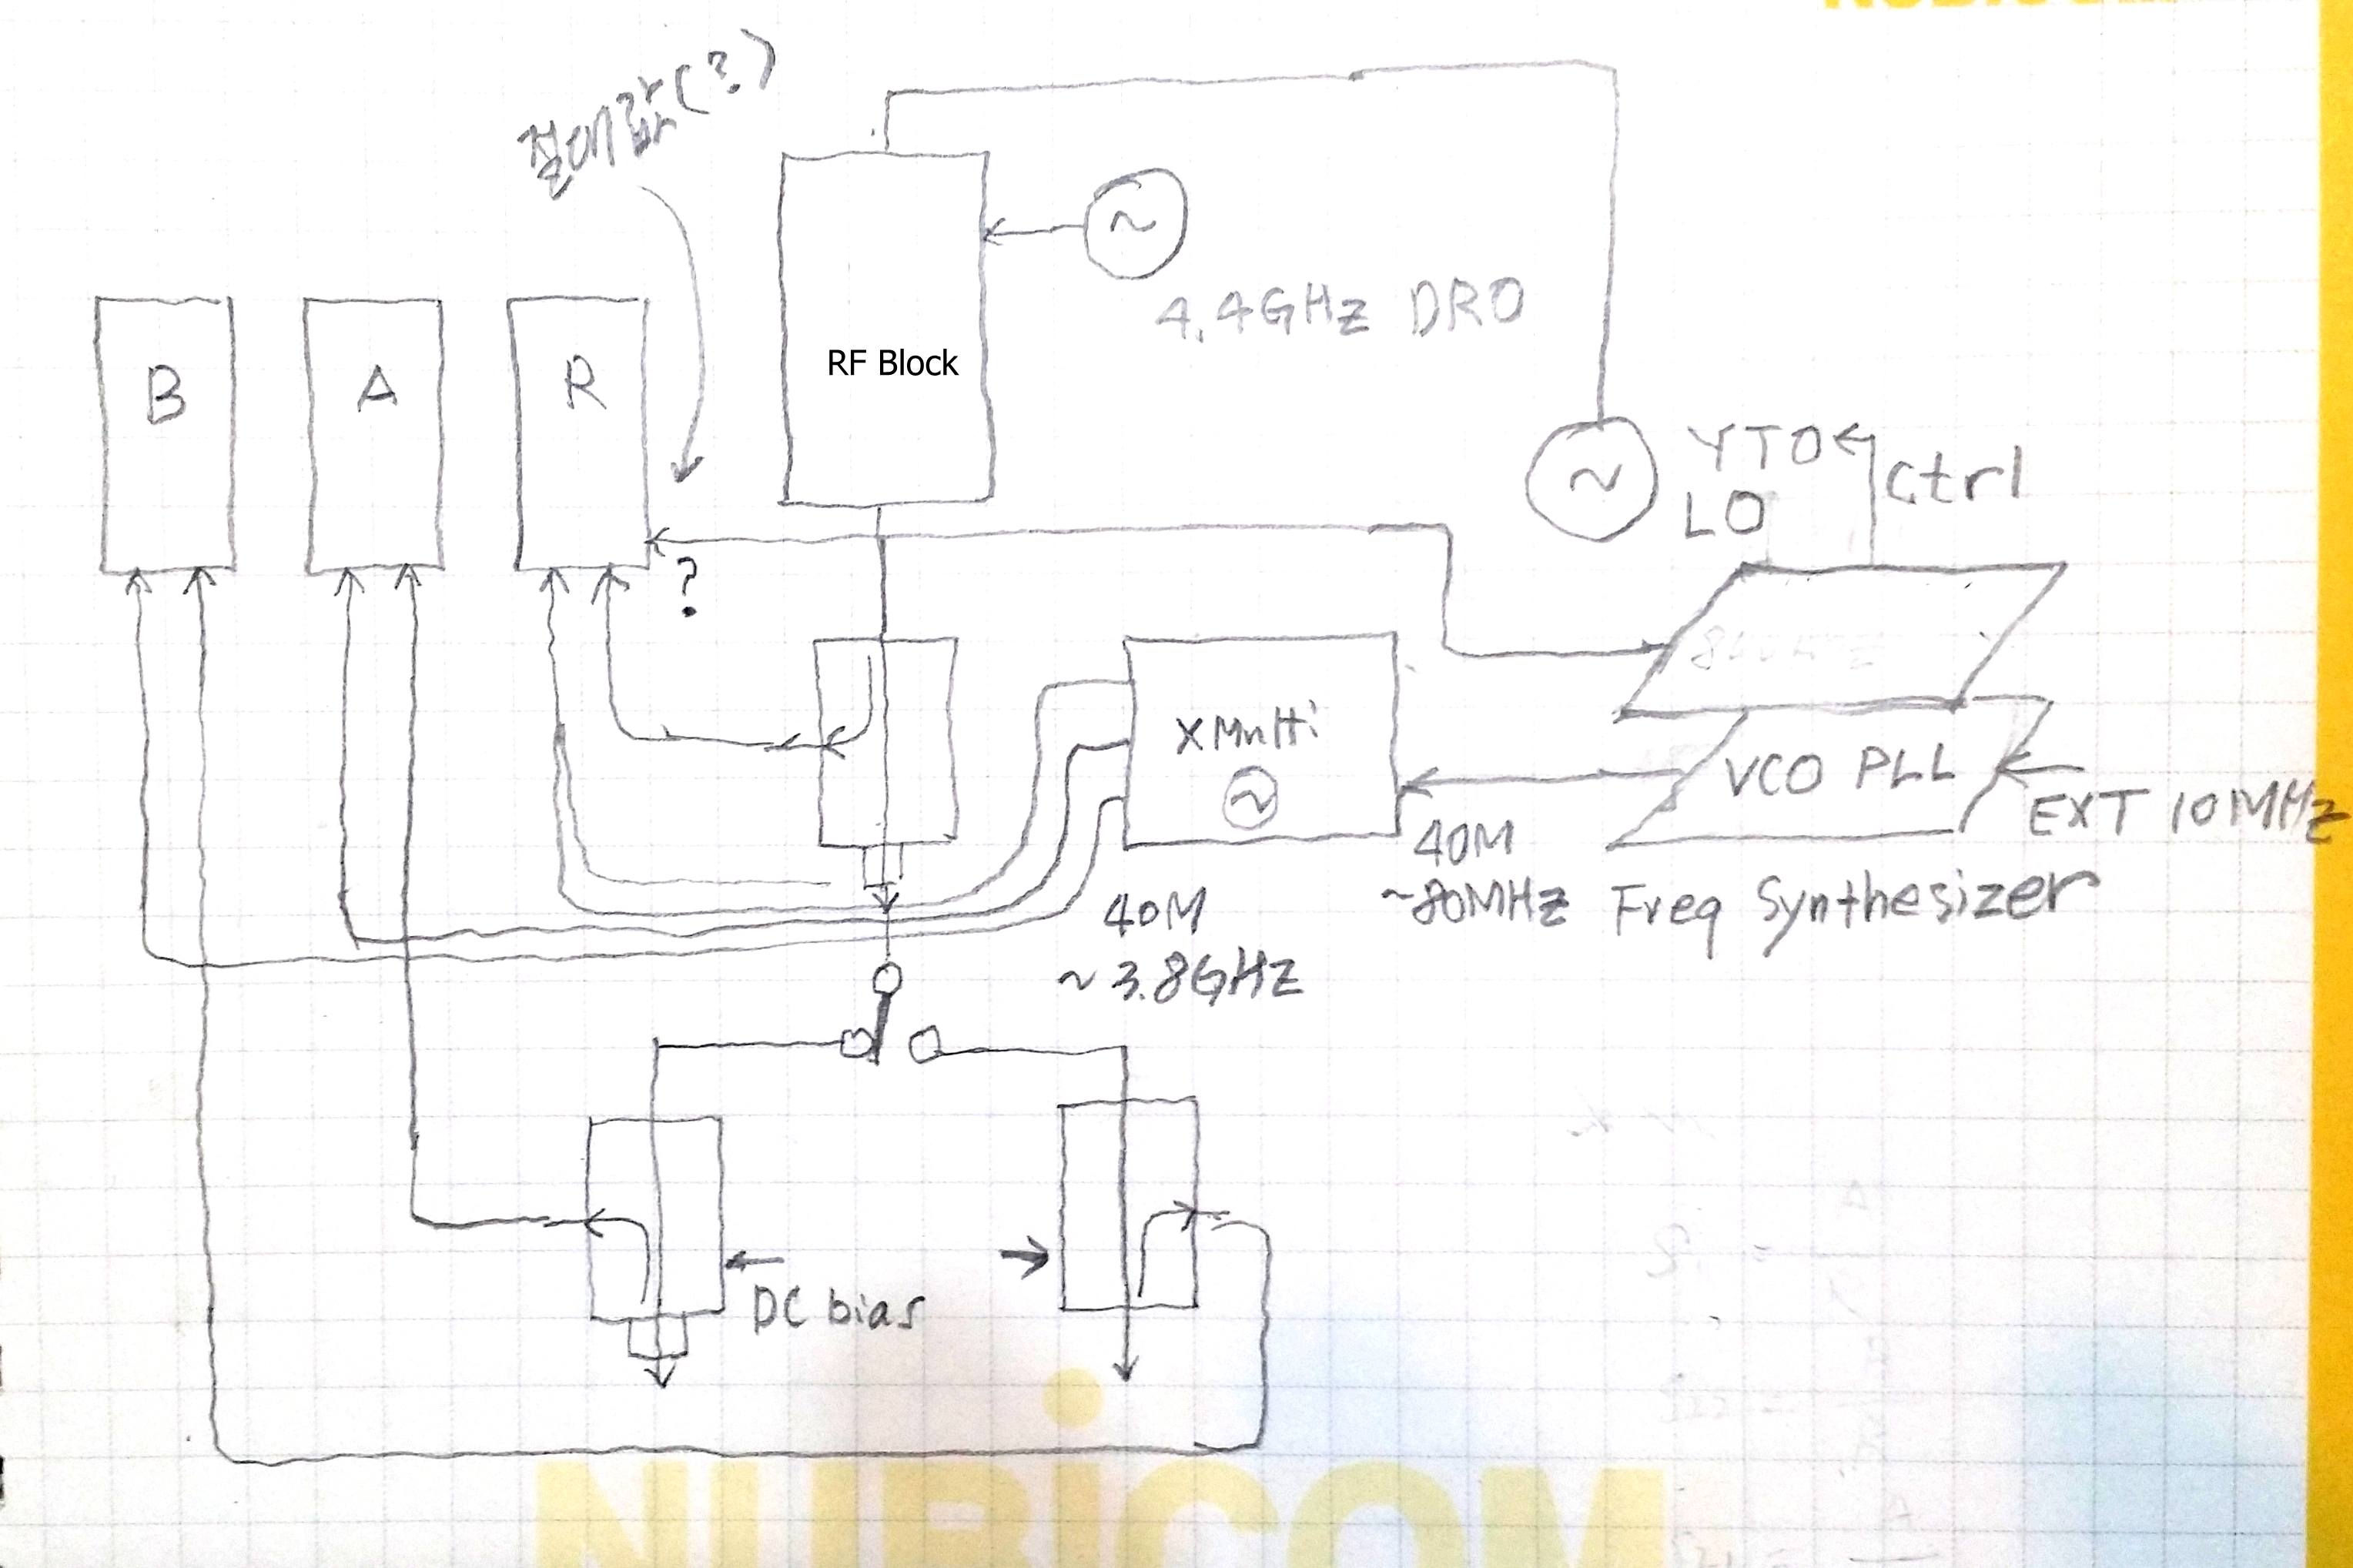 RF Block
4.4GHz DRO
B
A
R
YTO
LO
Ctrl
?
X Multi
~
VCO PLL
EXT 10MHz
40M
~80MHz
Freq Synthesizer
40M
~3.8GHz
DC bias
NUBiCOM